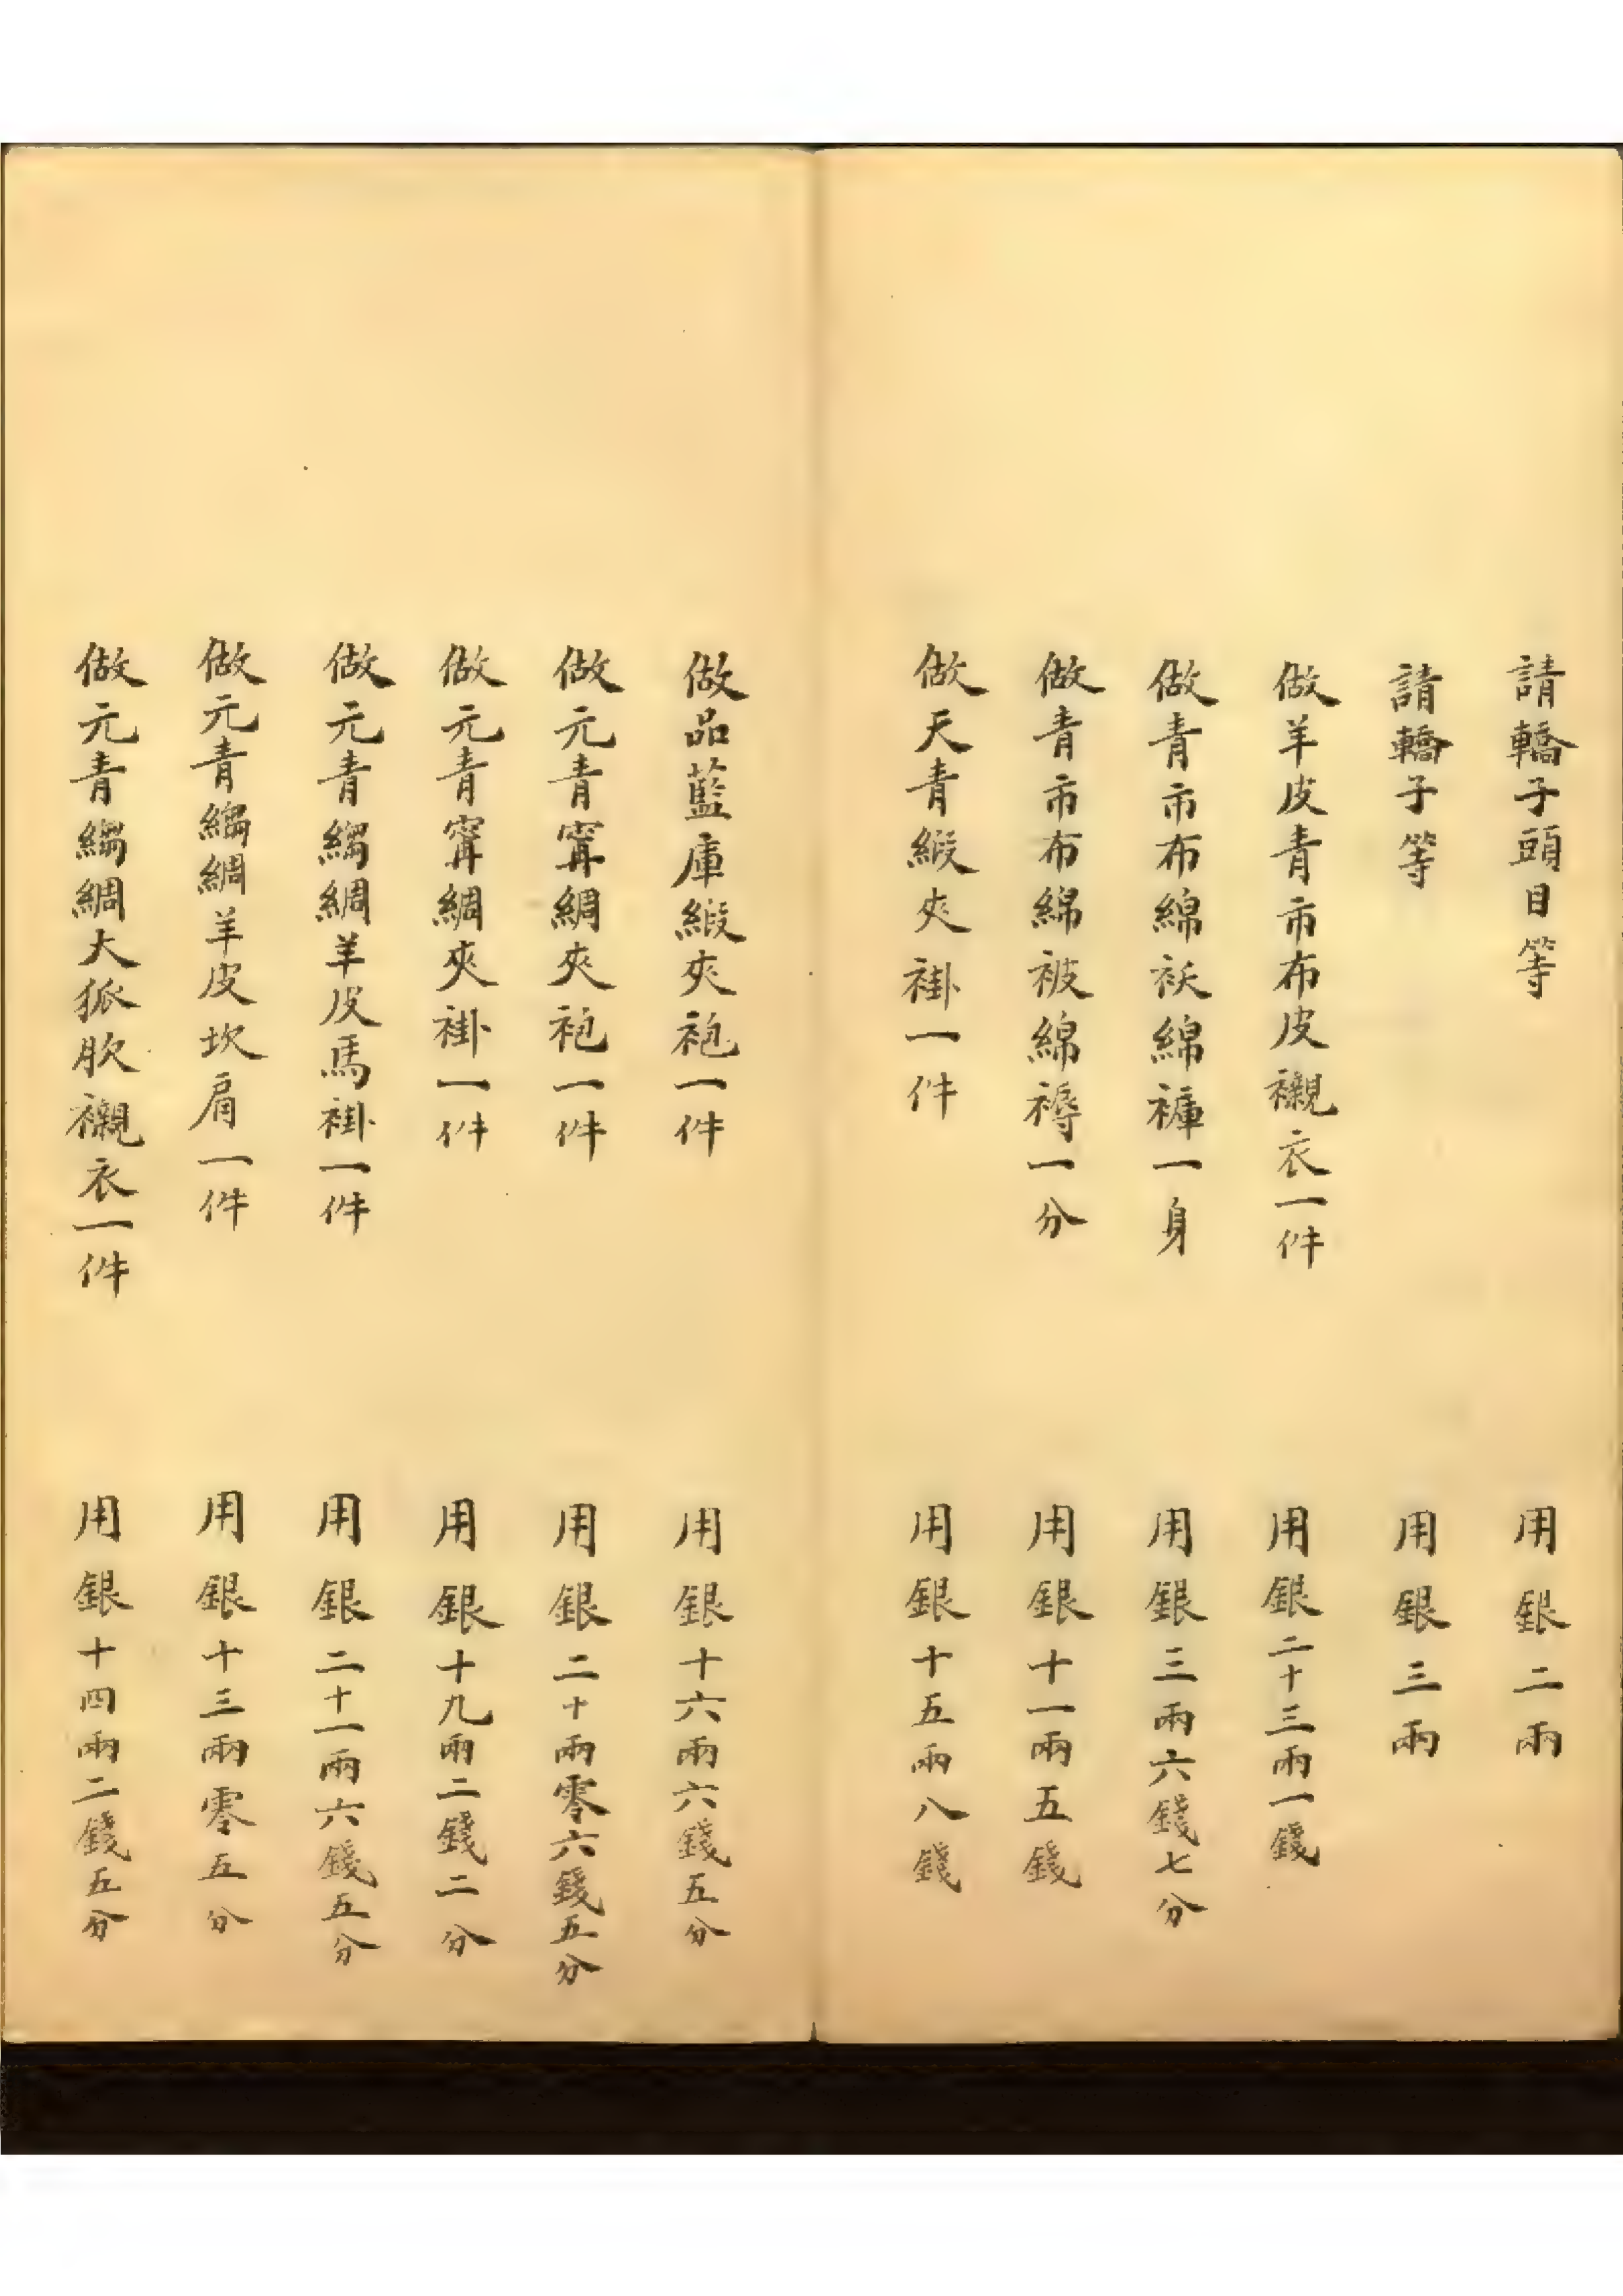 請轎子頭目等 用銀二兩
請轎子等 用銀三兩
做羊皮青市布皮襯衣一件 用銀二十三兩一錢
做青市布綿袄綿褲一身 用銀三兩六錢七分
做青市布綿被綿褥一分 用銀十一兩五錢
做天青緞夾褂一件 用銀十五兩八錢
做品藍庫緞夾袍一件 用銀十六兩六錢五分
做元青寗綢夾袍一件 用銀二十兩零六錢五分
做元青寗綢夾褂一件 用銀十九兩二錢二分
做元青縐綢羊皮馬褂一件 用銀二十一兩六錢五分
做元青縐綢羊皮坎肩一件 用銀十三兩零五分
做元青縐綢大狐肷襯衣一件 用銀十四兩二錢五分